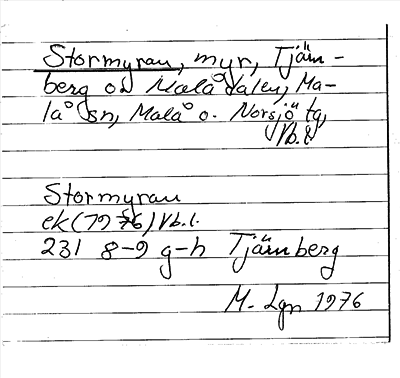 Stormyran, myr, Tjärn-
berg o Malådalen, Ma-
lå sn, Malå o. Norsjö tg,
Vb.l.
Stormyran
ek (1976) Vb.l.
231 8-9 g-h Tjärnberg
M. Lgn 1976